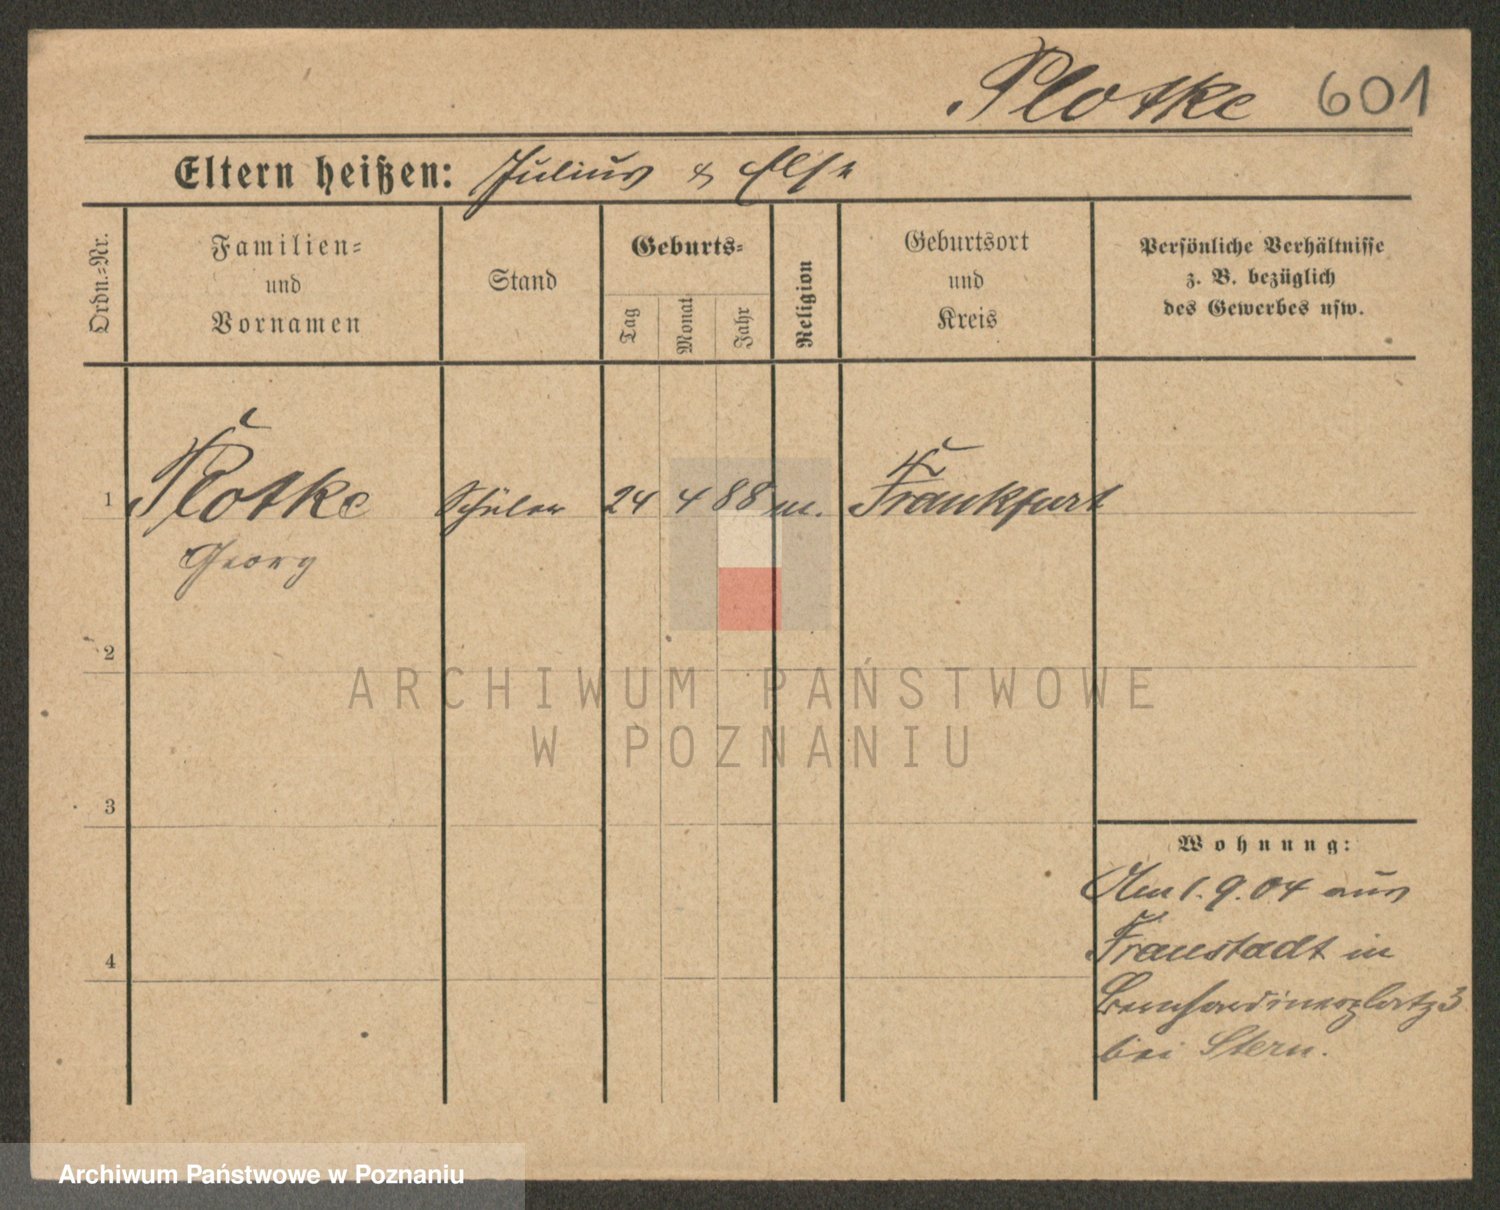 Plotke 601
Eltern heißen: Julius & Else
Ordn.=Nr.
Familien=
und
Vornamen
Stand
Geburts=
Tag
Monat
Jahr
Religion
Geburtsort
und
Kreis
Persönliche Verhältnisse
z. B. bezüglich
des Gewerbes usw.
1 Plotke Schüler 24 4 88 m. Frankfurt
Georg
2
ARCHIWUM PAŃSTWOWE
W POZNANIU
3
Wohnung:
Am 1.9.04 aus
4 Fraustadt in
Bernhardinerplatz 3
bei Stern.
Archiwum Państwowe w Poznaniu